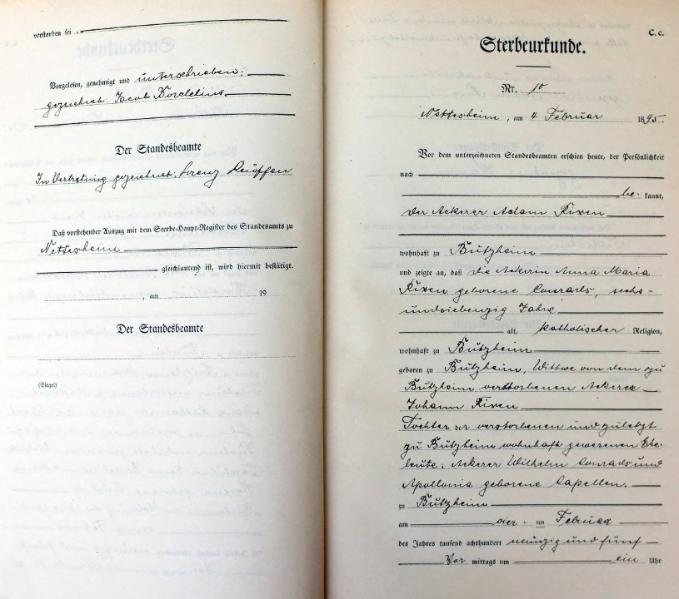 verstorben sei
Vorgelesen, genehmigt und unterschrieben:
gezeichnet: Jacob Kordelius
Der Standesbeamte
In Vertretung gezeichnet: Lorenz
Daß vorstehender Auszug mit dem Sterbe-Haupt-Register des Standesamts zu
Nettesheim
gleichlautend ist, wird hiermit bestätigt.
, am 19
Der Standesbeamte
(Siegel)
C. c.
Sterbeurkunde.
Nr. 10
Nettesheim, am 4 Februar 1895.
Vor dem unterzeichneten Standesbeamten erschien heute, der Persönlichkeit
nach
be- kannt,
der Ackerer Adam Fixen
wohnhaft zu Bützheim
und zeigte an, daß die Ackerin Anna Maria
Fixen geborene Conrads, sechs-
undsiebenzig Jahre
alt, katholischer Religion,
wohnhaft zu Bützheim
geboren zu Bützheim, Wittwe von dem zu
Bützheim verstorbenen Ackerer
Johann Fixen
Tochter der verstorbenen und zuletzt
zu Bützheim wohnhaft gewesenen Ehe-
leute: Ackerer Wilhelm Conrads und
Apollonia geborene Capellen.
zu Bützheim
am vier- ten Februar
des Jahres tausend achthundert neunzig und fünf
Vor mittags um ein Uhr